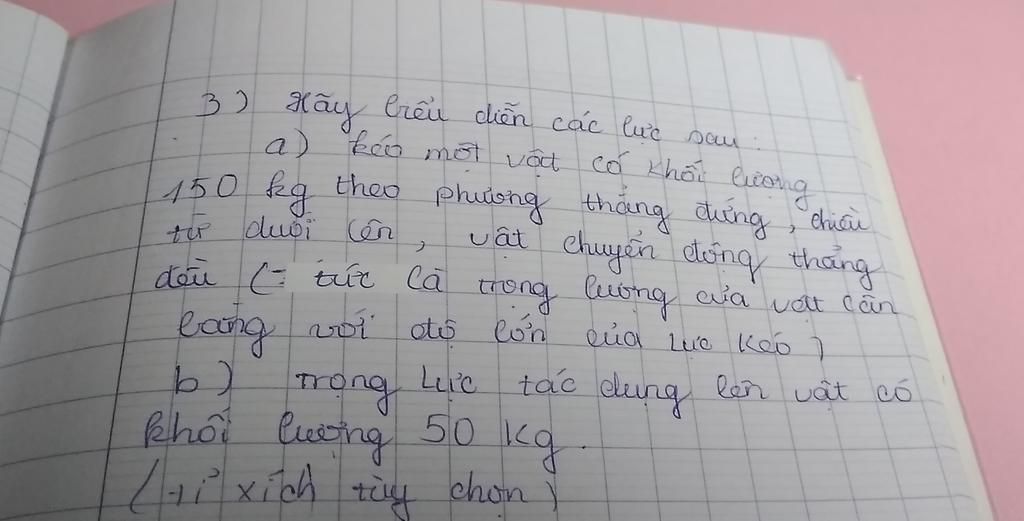 3) Hãy biểu diễn các lực sau:
a) kéo một vật có khối lượng
150 kg theo phương thẳng đứng, chiều
từ dưới lên, vật chuyển động thẳng
đều (= tức là trọng lượng của vật cân
bằng với độ lớn của lực kéo)
b) Trọng lực tác dụng lên vật có
khối lượng 50 kg.
(Tỉ xích tùy chọn)